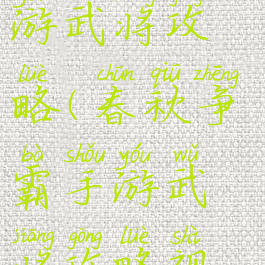 游武将攻
lüè chūn qiū zhēng
略(春秋争
bà shǒu yóu wǔ
霸手游武
jiāng gōng lüè shì